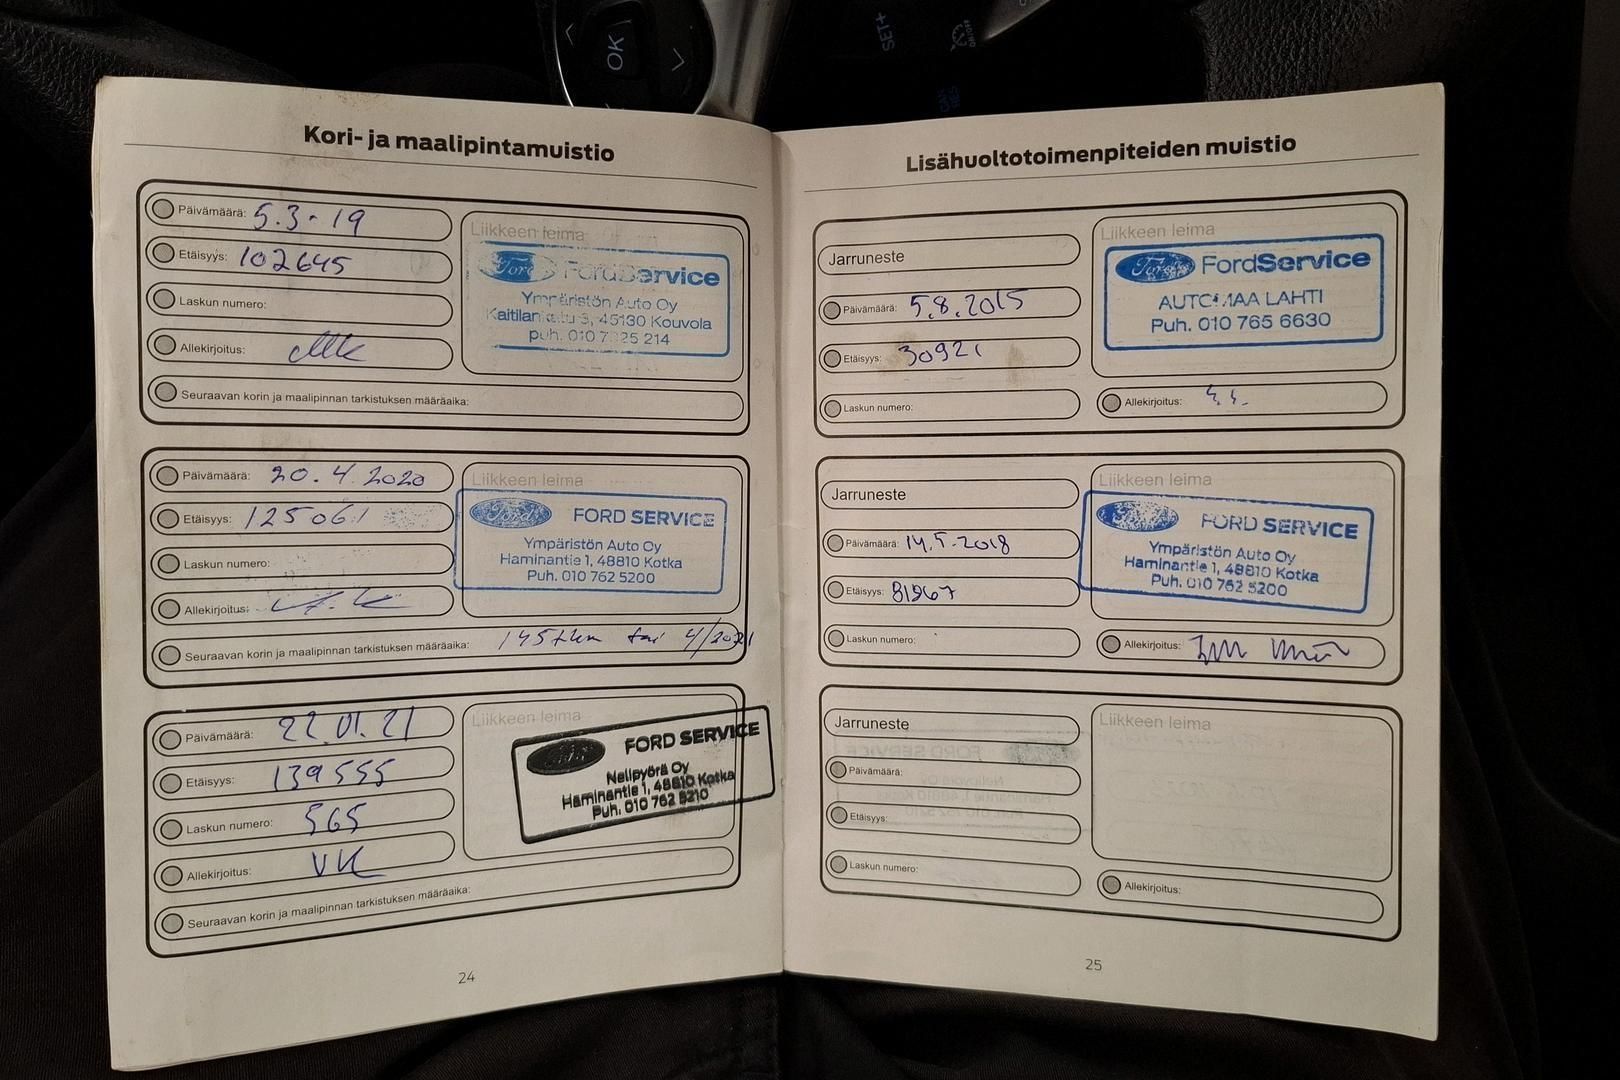 OK
SET+
Kori- ja maalipintamuistio
Päivämäärä: 5.3-19
Etäisyys: 102645
Laskun numero:
Allekirjoitus:
Seuraavan korin ja maalipinnan tarkistuksen määräaika:
Liikkeen leima
Ford FordService
Ympäristön Auto Oy
45130 Kouvola
puh. 010 7 25 214
Päivämäärä: 20.4.2020
Etäisyys: 125061
Laskun numero:
Allekirjoitus:
Seuraavan korin ja maalipinnan tarkistuksen määräaika: 145tkm tai 4/2021
Liikkeen leima
Ford FORD SERVICE
Ympäristön Auto Oy
Haminantie 1, 48810 Kotka
Puh. 010 762 5200
Päivämäärä: 22.01.21
Etäisyys: 139555
Laskun numero: 565
Allekirjoitus: VK
Seuraavan korin ja maalipinnan tarkistuksen määräaika:
Liikkeen leima
FORD SERVICE
Nelipyörä Oy
Haminantie 1, 48810 Kotka
Puh. 010 762 5210
24
Lisähuoltotoimenpiteiden muistio
Jarruneste
Päivämäärä: 5.8.2015
Etäisyys: 30921
Laskun numero:
Liikkeen leima
Ford FordService
AUTOMAA LAHTI
Puh. 010 765 6630
Allekirjoitus:
Jarruneste
Päivämäärä: 14.5.2018
Etäisyys: 81967
Laskun numero:
Liikkeen leima
Ford FORD SERVICE
Ympäristön Auto Oy
Haminantie 1, 48810 Kotka
Puh. 010 762 5200
Allekirjoitus:
Jarruneste
Päivämäärä:
Etäisyys:
Laskun numero:
Liikkeen leima
Allekirjoitus:
25